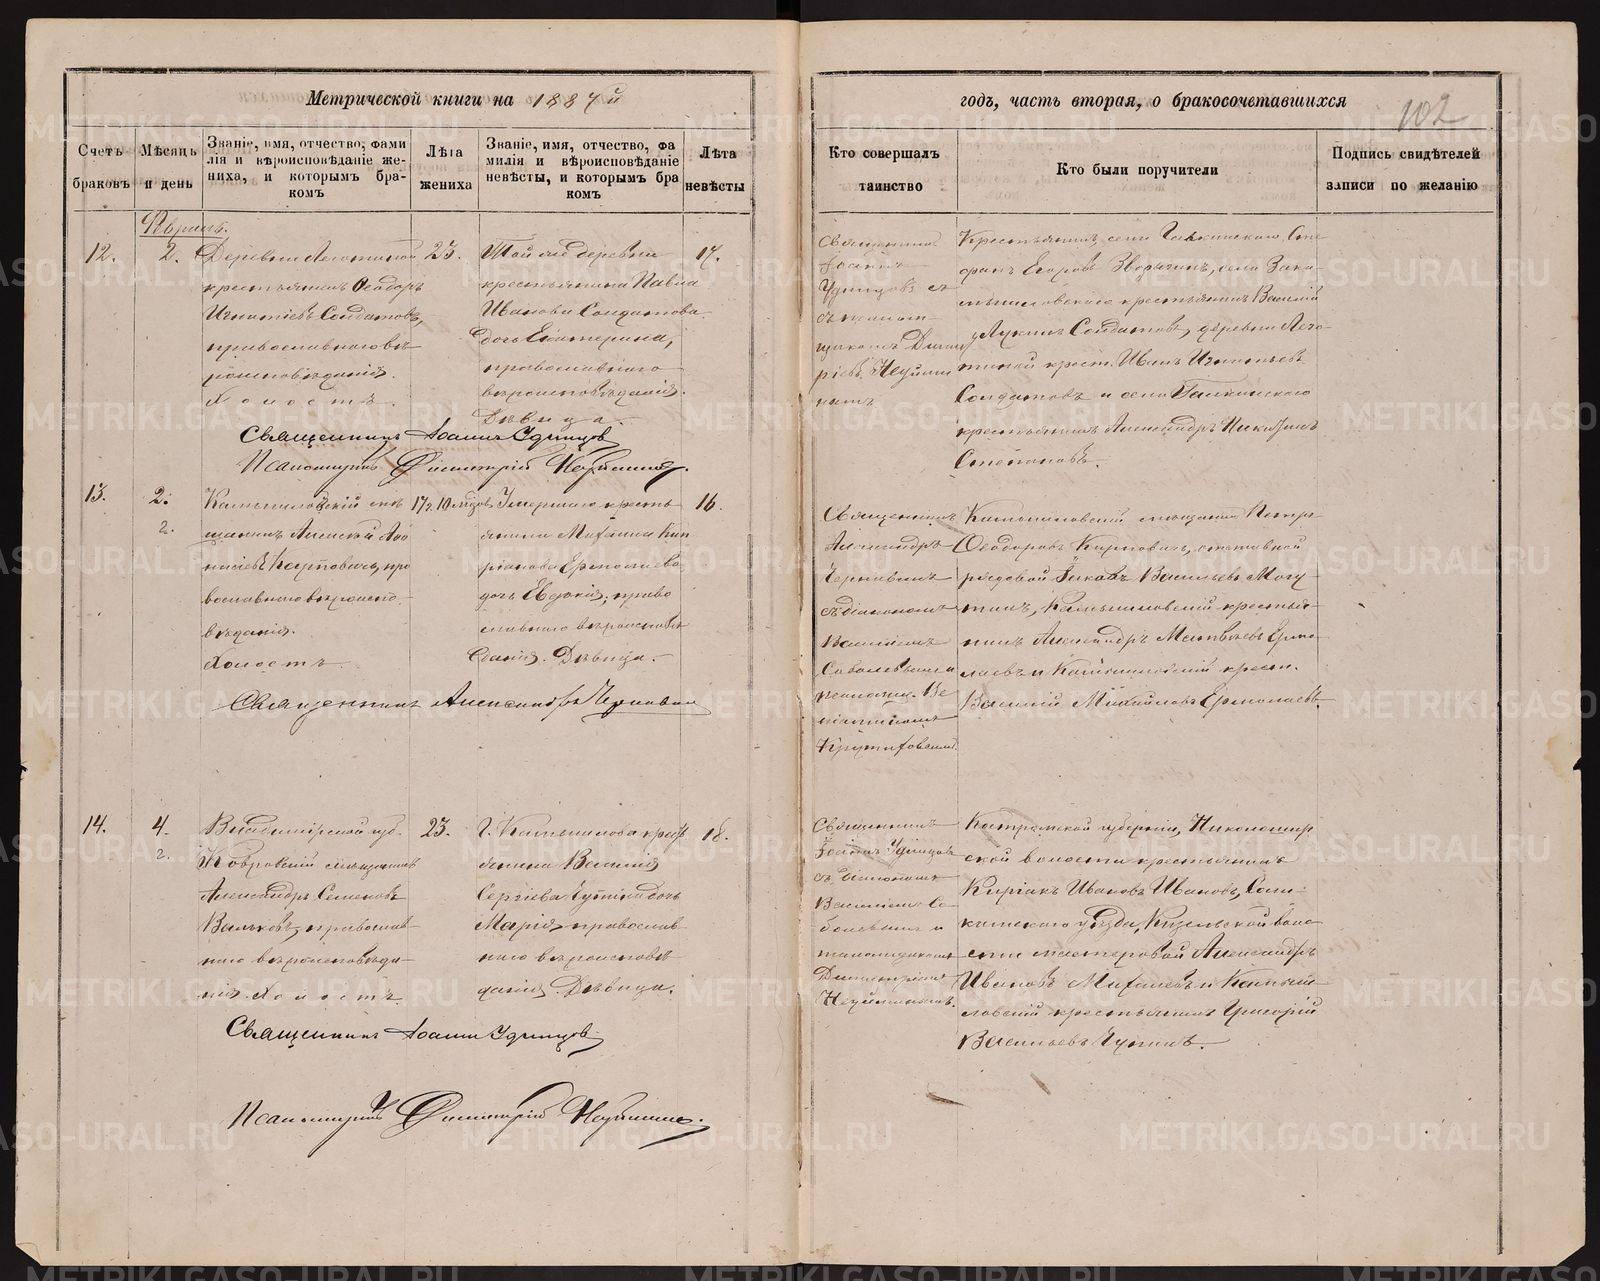 Метрической книги на 1887й
годъ, часть вторая, о бракосочетавшихся
102
Счетъ браковъ
Мѣсяцъ и день
Званіе, имя, отчество, фами
лія и вѣроисповѣданіе же-
ниха, и которымъ бра-
комъ
Лѣта жениха
Званіе, имя, отчество, фа
милія и вѣроисповѣданіе
невѣсты, и которымъ бра
комъ
Лѣта невѣсты
Кто совершалъ
таинство
Кто были поручители
Подпись свидѣтелей
записи по желанію
12.
2.
Деревни
крестьянинъ Ѳеодоръ
Игнатіевъ Солдатовъ,
православнаго вѣ
роисповѣданія.
Холостъ.
23.
Той же деревни
крестьянина Павла
Иванова Солдатова
дочь Екатерина,
православнаго
вѣроисповѣданія.
Дѣвица.
17.
Священникъ
Іоаннъ
Удинцовъ съ
псалом-
щикомъ Димит
ріемъ
Крестьянинъ села Галкинскаго Сте
фанъ Егоровъ села Зака-
мышловскаго крестьянинъ Василій
Солдатовъ, деревни
крест. Иванъ Игнатьевъ
Солдатовъ и села Галкинскаго
крестьянинъ Александръ
Степановъ.
Священникъ Іоаннъ Удинцовъ
Псаломщикъ Димитрій
13.
2.
2.
Камышловскій мѣ
щанинъ Алексѣй Аѳо
насіевъ Карповичъ, пра
вославнаго вѣроиспо-
вѣданія.
Холостъ.
17 г. 10 мѣсяц.
Умершаго кресть-
янина Михаила Кип
ріанова Ермолаева
дочь Евдокія, право
славнаго вѣроисповѣ
данія. Дѣвица.
16.
Священникъ
Александръ
Чернавинъ
съ діакономъ
Василіемъ
Соболевымъ и
Камышловскій мѣщанинъ Петръ
Ѳеодоровъ Карповичъ, отставной
рядовой Іаковъ Васильевъ
Камышловскій крестья-
нинъ Александръ Матвѣевъ Ермо-
лаевъ и Камышловскій крест.
Василій Михайловъ Ермолаевъ.
Священникъ Александръ Чернавинъ
14.
4.
2.
Владимірской губ.
Ковровскій мѣщанинъ
Александръ Семеновъ
Вальковъ, православ-
наго вѣроисповѣда-
нія. Холостъ.
23.
г. Камышлова крест
янина Василія
Сергѣева дочь
Марія, православ-
наго вѣроисповѣ-
данія. Дѣвица.
18.
Священникъ
Іоаннъ Удинцовъ
съ діакономъ
Василіемъ Со-
болевымъ и
псаломщикомъ
Димитріемъ
Костромской губерніи,
ской волости крестьянинъ
Иванъ Ивановъ, Соли-
камскаго уѣзда, Кизельской воло-
сти мастеровой Александръ
Ивановъ Михалевъ и Камыш
ловскій крестьянинъ Григорій
Васильевъ
Священникъ Іоаннъ Удинцовъ
Псаломщикъ Димитрій
METRIKI.GASO-URAL.RU